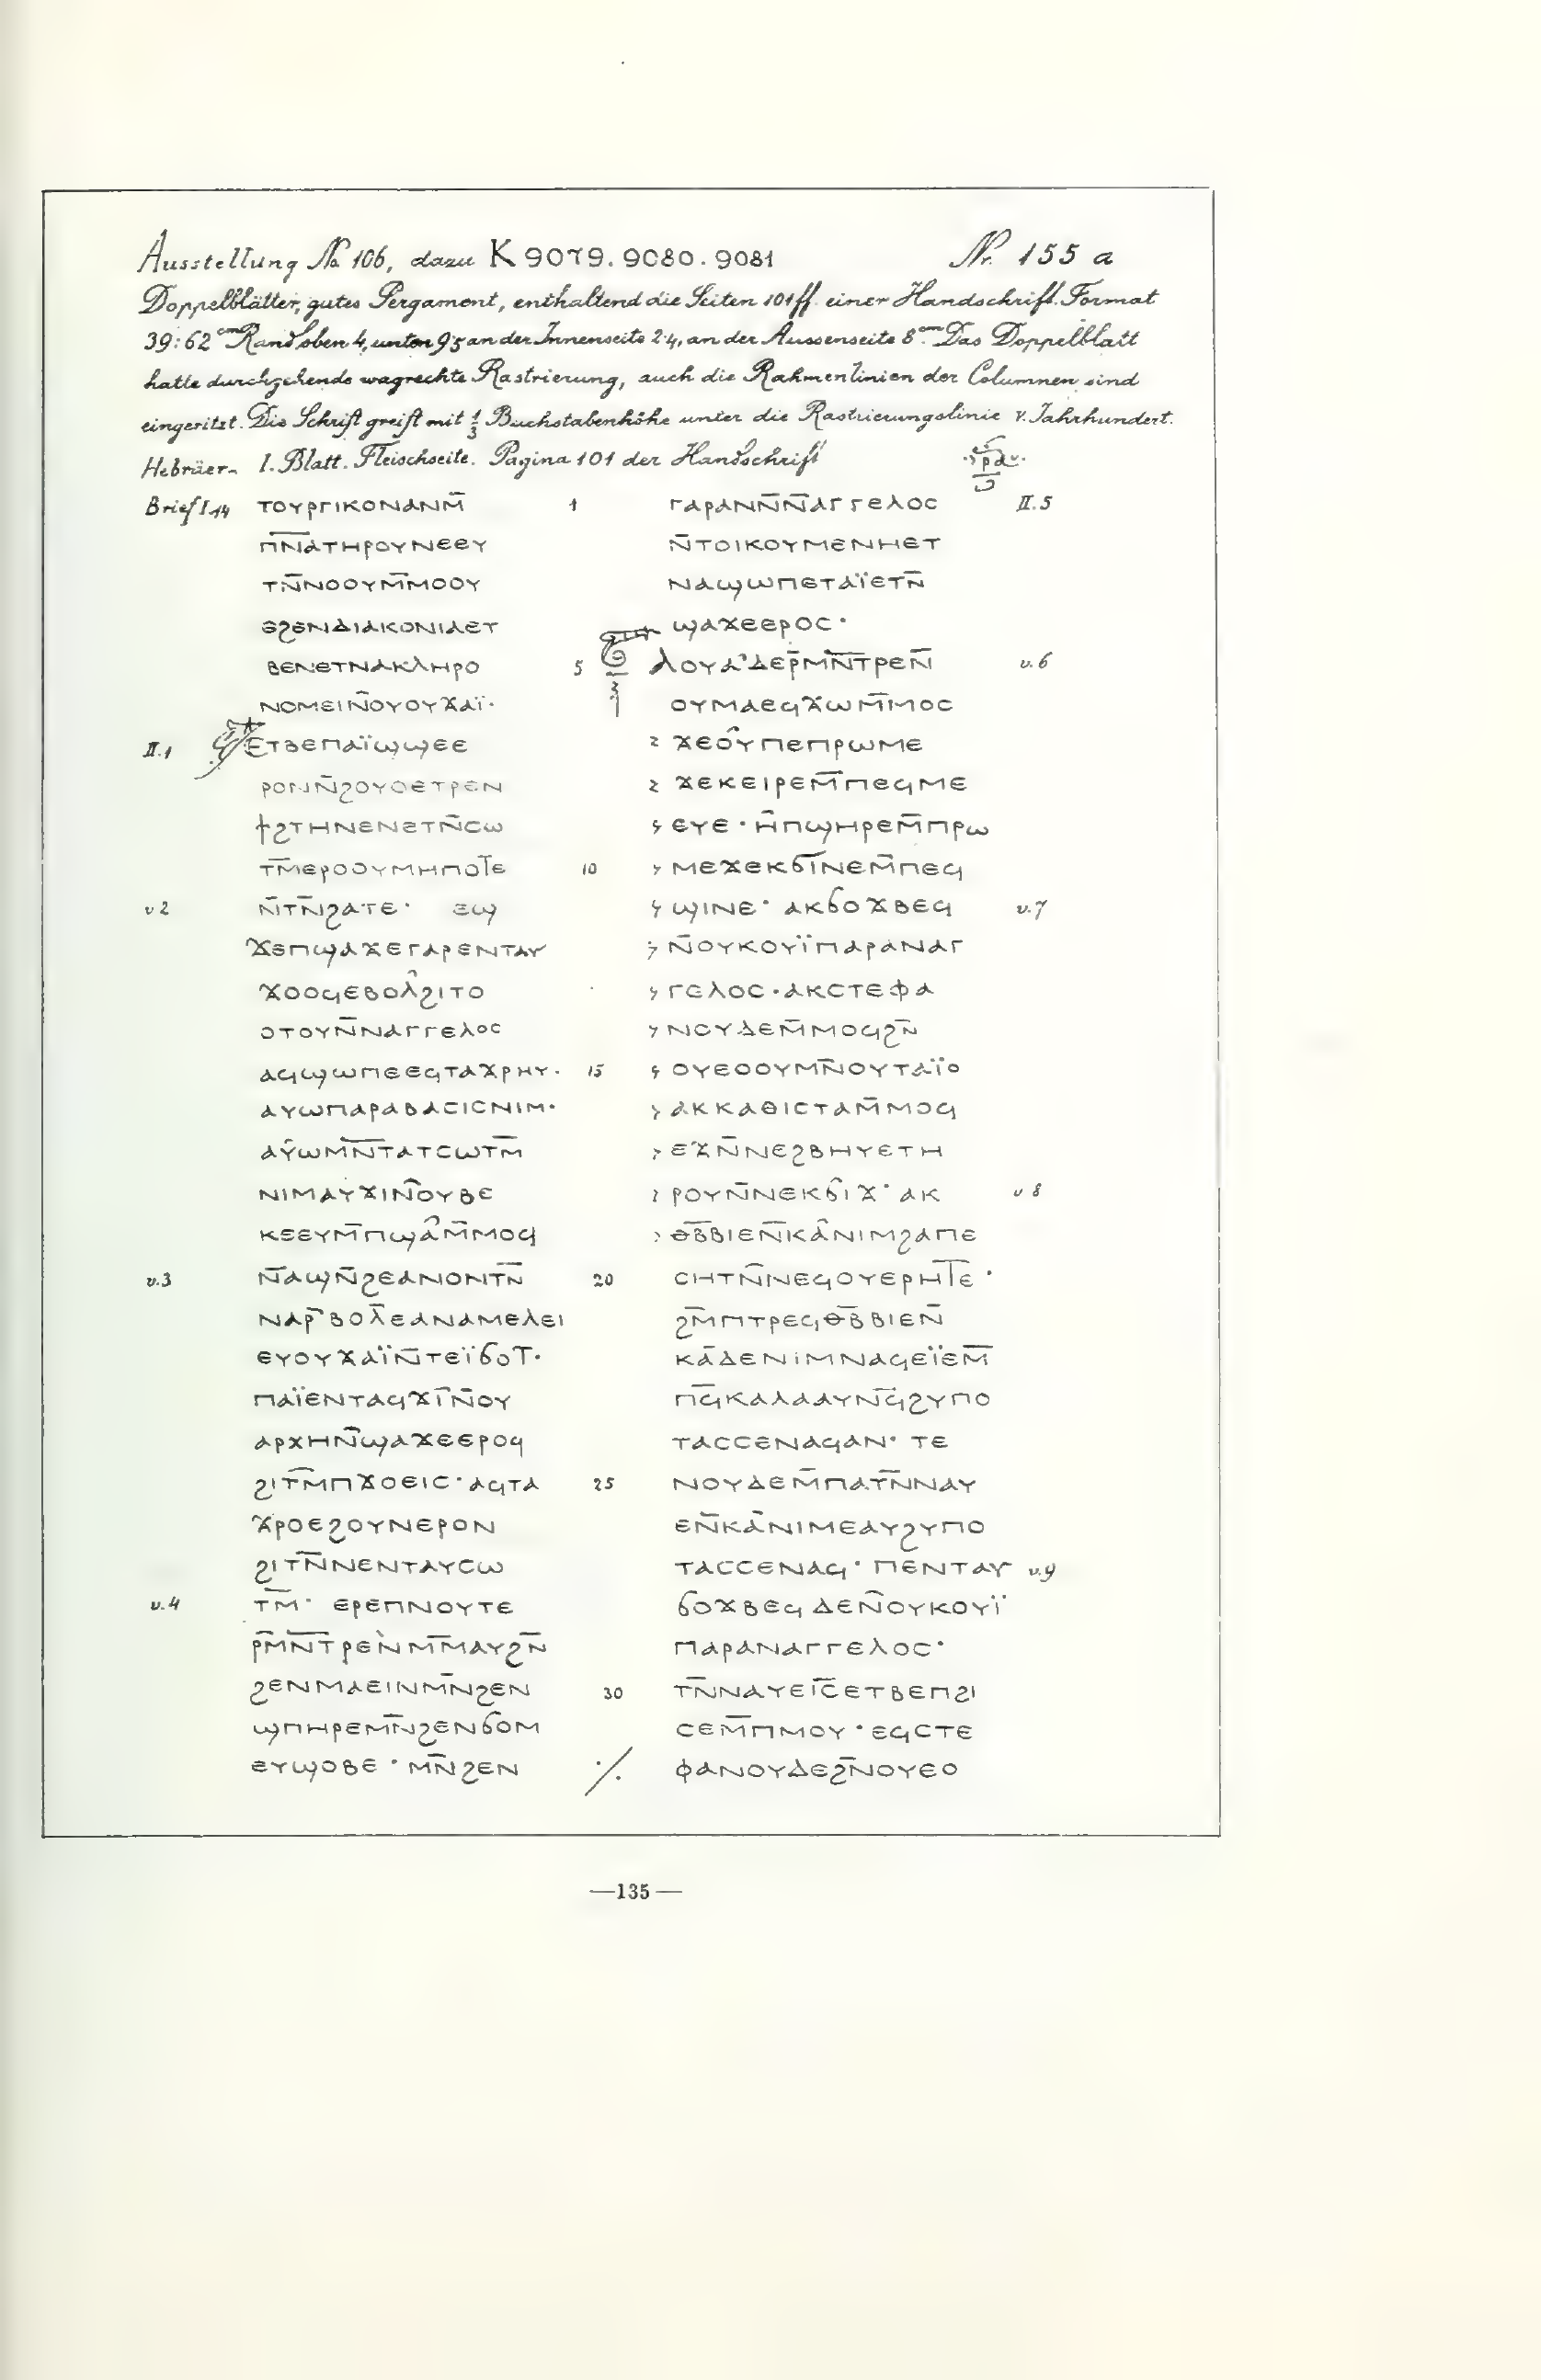 Ausstellung No 106, dazu K 9079. 9080. 9081 Nr. 155 a
Doppelblätter, gutes Pergament, enthaltend die Seiten 101 ff. einer Handschrift. Format
39:62 cm Rand oben 4, unten 9·5 an der Innenseite 2·4, an der Aussenseite 8 cm. Das Doppelblatt
hatte durchgehende wagrechte Rastrierung, auch die Rahmenlinien der Columnen sind
eingeritzt. Die Schrift greift mit 1/3 Buchstabenhöhe unter die Rastrierungslinie V. Jahrhundert.
Hebräer- I. Blatt. Fleischseite. Pagina 101 der Handschrift ⲣⲁ
Brief I.14 ⲧⲟⲩⲣⲅⲓⲕⲟⲛⲁⲛⲙ̄ 1
ⲡ̄ⲛ̄ⲁ̄ⲧⲏⲣⲟⲩⲛⲉⲉⲩ
ⲧⲛ̄ⲛⲟⲟⲩⲙ̄ⲙⲟⲟⲩ
ⲉϩⲉⲛⲇⲓⲁⲕⲟⲛⲓⲁⲉⲧ
ⲃⲉⲛⲉⲧⲛⲁⲕⲗⲏⲣⲟ 5
ⲛⲟⲙⲉⲓⲛ̄ⲟⲩⲟⲩϫⲁⲓ̈·
II.1 ⲉⲧⲃⲉⲡⲁⲓ̈ϣϣⲉⲉ
ⲣⲟⲛⲛ̄ϩⲟⲩⲟⲉⲧⲣⲉⲛ
ϯϩⲧⲏⲛⲉⲛⲉⲧⲛ̄ⲥⲱ
ⲧⲙ̄ⲉⲣⲟⲟⲩⲙⲏⲡⲟⲧ̄ⲉ 10
v 2 ⲛ̄ⲧⲛ̄ϩⲁⲧⲉ· ⲉϣ
ϫⲉⲡϣⲁϫⲉⲅⲁⲣⲉⲛⲧⲁⲩ
ϫⲟⲟϥⲉⲃⲟⲗ̂ϩⲓⲧⲟ
ⲟⲧⲟⲩⲛ̄ⲛⲁⲅⲅⲉⲗⲟⲥ
ⲁϥϣⲱⲡⲉⲉϥⲧⲁϫⲣⲏⲩ· 15
ⲁⲩⲱⲡⲁⲣⲁⲃⲁⲥⲓⲥⲛⲓⲙ·
ⲁⲩ̂ⲱⲙ̄ⲛ̄ⲧⲁⲧⲥⲱⲧⲙ̄
ⲛⲓⲙⲁⲩϫⲓⲛ̂ⲟⲩⲃⲉ
ⲕⲉⲉⲩⲙ̄ⲡϣⲁ̂ⲙ̄ⲙⲟϥ
v.3 ⲛ̄ⲁϣⲛ̄ϩⲉⲁⲛⲟⲛⲧⲛ̄ 20
ⲛⲁⲣ̄ⲃⲟⲗ̄ⲉⲁⲛⲁⲙⲉⲗⲉⲓ
ⲉⲩⲟⲩϫⲁⲓ̈ⲛ̄ⲧⲉⲓ̈ϭⲟⲧ·
ⲡⲁⲓ̈ⲉⲛⲧⲁϥϫⲓ̄ⲛ̄ⲟⲩ
ⲁⲣⲭⲏⲛ̄ϣⲁϫⲉⲉⲣⲟϥ
ϩⲓⲧⲙ̄ⲡϫⲟⲉⲓⲥ·ⲁϥⲧⲁ 25
ϫⲣⲟⲉϩⲟⲩⲛⲉⲣⲟⲛ
ϩⲓⲧⲛ̄ⲛⲉⲛⲧⲁⲩⲥⲱ
v.4 ⲧⲙ̄· ⲉⲣⲉⲡⲛⲟⲩⲧⲉ
ⲣ̄ⲙ̄ⲛ̄ⲧⲣⲉⲛ̀ⲙ̄ⲙⲁⲩϩⲛ̄
ϩⲉⲛⲙⲁⲉⲓⲛⲙⲛ̄ϩⲉⲛ 30
ϣⲡⲏⲣⲉⲙⲛ̄ϩⲉⲛϭⲟⲙ
ⲉⲩϣⲟⲃⲉ·ⲙⲛ̄ϩⲉⲛ ·/.
ⲅⲁⲣⲁⲛⲛ̄ⲛ̄ⲁⲅⲅⲉⲗⲟⲥ II.5
ⲛ̄ⲧⲟⲓⲕⲟⲩⲙⲉⲛⲏⲉⲧ
ⲛⲁϣⲱⲡⲉⲧⲁⲓ̈ⲉⲧⲛ̄
ϣⲁϫⲉⲉⲣⲟⲥ·
ⲗⲟⲩⲁ̓ⲇⲉⲣ̄ⲙ̄ⲛ̄ⲧⲣⲉⲛ̄ v.6
ⲟⲩⲙⲁⲉϥϫⲱⲙ̄ⲙⲟⲥ
> ϫⲉⲟⲩ̂ⲡⲉⲡⲣⲱⲙⲉ
> ϫⲉⲕⲉⲓⲣⲉⲙ̄ⲡⲉϥⲙⲉ
> ⲉⲩⲉ·ⲏ̂ⲡϣⲏⲣⲉⲙ̄ⲡⲣⲱ
> ⲙⲉϫⲉⲕϭⲓ̄ⲛⲉⲙ̄ⲡⲉϥ
> ϣⲓⲛⲉ· ⲁⲕϭⲟϫⲃⲉϥ v.7
> ⲛ̄ⲟⲩⲕⲟⲩⲓ̈ⲡⲁⲣⲁⲛⲁⲅ
> ⲅⲉⲗⲟⲥ·ⲁⲕⲥⲧⲉⲫⲁ
> ⲛⲟⲩⲇⲉⲙ̄ⲙⲟϥϩⲛ̄
> ⲟⲩⲉⲟⲟⲩⲙⲛ̄ⲟⲩⲧⲁⲓ̈ⲟ
> ⲁⲕⲕⲁⲑⲓⲥⲧⲁⲙ̄ⲙⲟϥ
> ⲉϫⲛ̄ⲛⲉϩⲃⲏⲩⲉⲧⲏ
> ⲣⲟⲩⲛ̄ⲛⲉⲕϭⲓ̂ϫ·ⲁⲕ v 8
> ⲑⲃ̄ⲃⲓⲉⲛ̄ⲕⲁ̂ⲛⲓⲙϩⲁⲡⲉ
ⲥⲏⲧⲛ̄ⲛⲉϥⲟⲩⲉⲣⲏⲧ̄ⲉ·
ϩⲙ̄ⲡⲧⲣⲉϥⲑⲃ̄ⲃⲓⲉⲛ̄
ⲕⲁ̄ⲇⲉⲛⲓⲙⲛⲁϥⲉⲓ̈ⲉⲙ̄
ⲡϥ̄ⲕⲁⲗⲁⲁⲩⲛϥ̄ϩⲩⲡⲟ
ⲧⲁⲥⲥⲉⲛⲁϥⲁⲛ· ⲧⲉ
ⲛⲟⲩⲇⲉⲙ̄ⲡⲁⲧⲛ̄ⲛⲁⲩ
ⲉⲛ̄ⲕⲁ̄ⲛⲓⲙⲉⲁⲩϩⲩⲡⲟ
ⲧⲁⲥⲥⲉⲛⲁϥ·ⲡⲉⲛⲧⲁⲩ v.9
ϭⲟϫⲃⲉϥⲇⲉⲛ̄ⲟⲩⲕⲟⲩⲓ̈
ⲡⲁⲣⲁⲛⲁⲅⲅⲉⲗⲟⲥ·
ⲧⲛ̄ⲛⲁⲩⲉⲓ̄ⲥ̄ⲉⲧⲃⲉⲡϩⲓ
ⲥⲉⲙ̄ⲡⲙⲟⲩ·ⲉϥⲥⲧⲉ
ⲫⲁⲛⲟⲩⲇⲉϩⲛ̄ⲟⲩⲉⲟ
—135—